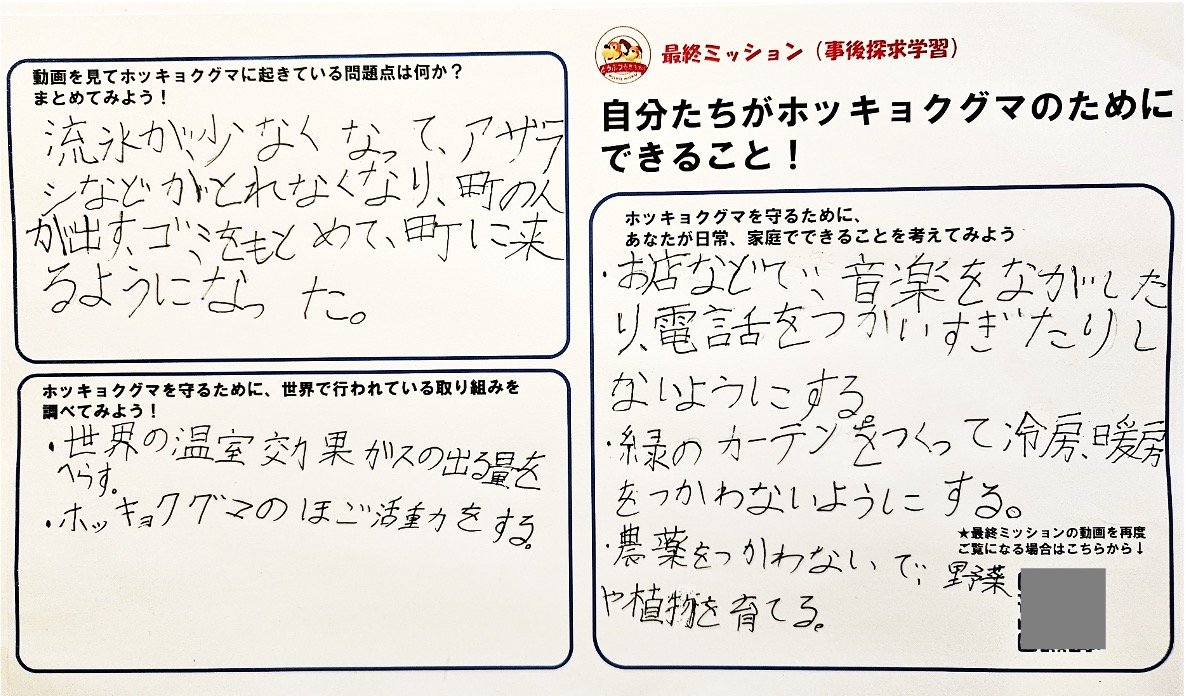 動画を見てホッキョクグマに起きている問題点は何か？
まとめてみよう！
流氷が、少なくなって、アザラ
シなどがとれなくなり、町の人
が出す、ゴミをもとめて、町に来
るようになった。
ホッキョクグマを守るために、世界で行われている取り組みを
調べてみよう！
・世界の温室効果ガスの出る量を
へらす。
・ホッキョクグマのほご活動をする。
最終ミッション（事後探求学習）
自分たちがホッキョクグマのために
できること！
ホッキョクグマを守るために、
あなたが日常、家庭でできることを考えてみよう
・お店などで、音楽をながした
り、電話をつかいすぎたりし
ないようにする。
・緑のカーテンをつくって冷房、暖房
をつかわないようにする。
★最終ミッションの動画を再度
ご覧になる場合はこちらから↓
・農薬をつかわないで、野菜
や植物を育てる。